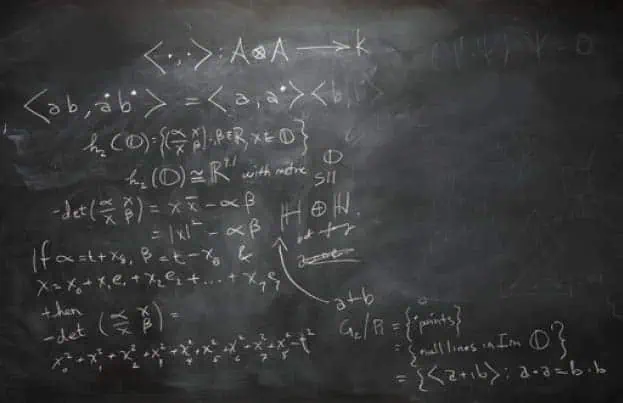 <·,·> : A⊗A → k
<ab, a*b*> = <a,a*><b
h₂(𝕆) = {(α x / x̄ β) : α,β∈ℝ, x∈𝕆}
h₂(𝕆) ≅ ℝ^9,1 with metric
-det(α x / x̄ β) = x x̄ - αβ
= |x|² - αβ
𝕆
SII
ℍ ⊕ ℍ.
If α = t + x₈, β = t - x₈ &
x = x₀ + x₁e₁ + x₂e₂ + ... + x₇e₇
then
-det (α x / x̄ β) =
x₀² + x₁² + x₂² + x₃² + x₄² + x₅² + x₆² + x₇² + x₈² - t²
a+b
G₂/P₁ = {"points}
= {null lines in Im 𝕆'}
= {<a+b> : a·a = b·b